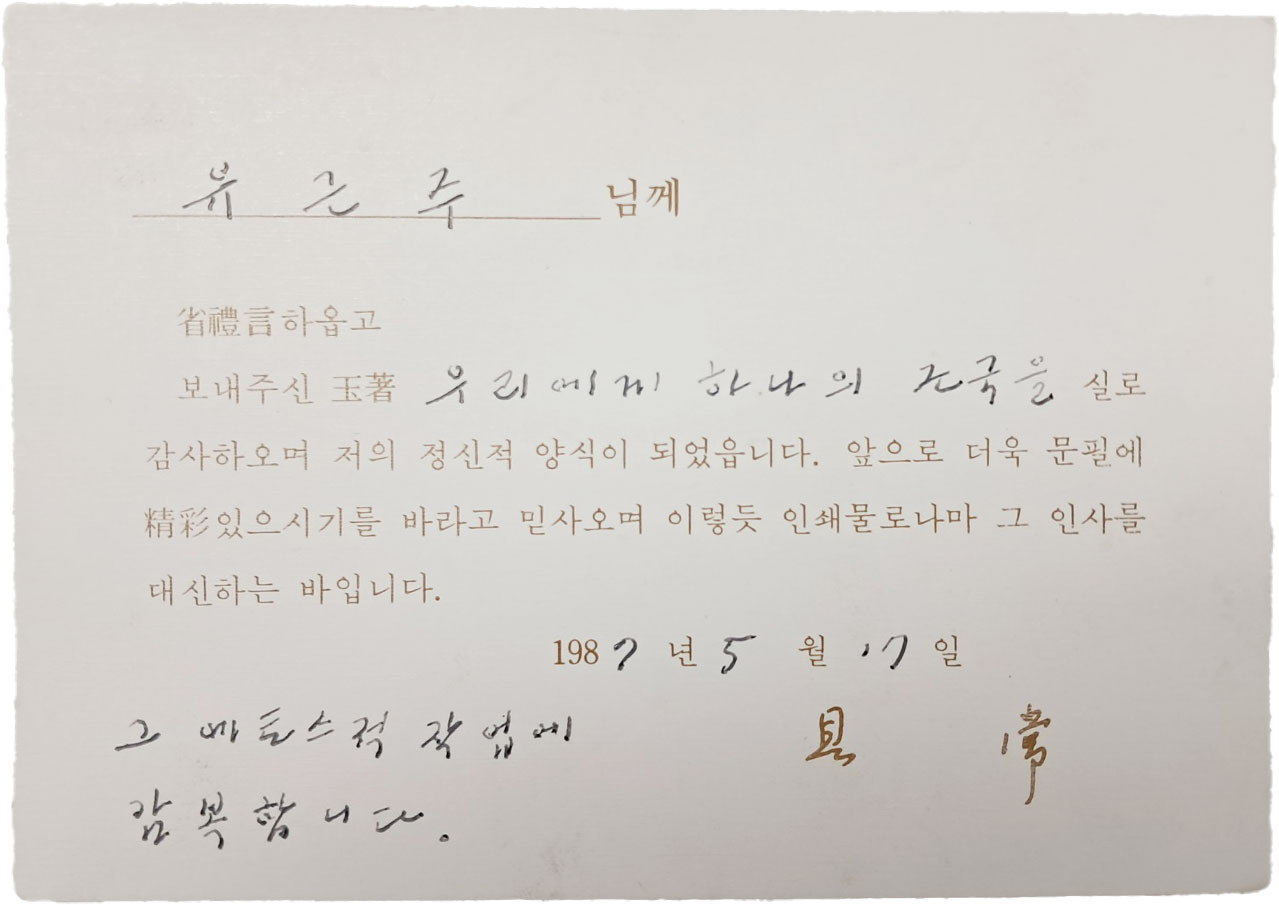 유 근 주 님께
省禮言하옵고
보내주신 玉著 우리에게 하나의 조국을 실로
감사하오며 저의 정신적 양식이 되었읍니다. 앞으로 더욱 문필에
精彩있으시기를 바라고 믿사오며 이렇듯 인쇄물로나마 그 인사를
대신하는 바입니다.
1987년 5월 17일
그 에토스적 작업에
감복합니다.
具 常